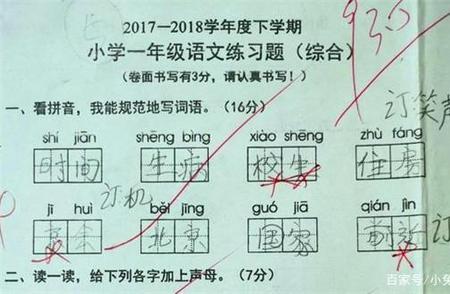 2017—2018学年度下学期
小学一年级语文练习题（综合）
（卷面书写有3分，请认真书写！）
一、看拼音，我能规范地写词语。（16分）
订笑声
shí jiān shēng bìng xiào shēng zhù fáng
时间 生病 校生 住房
订机
jī huì běi jīng guó jiā qián jìn
会 北京 国家 前
订
二、读一读，给下列各字加上声母。（7分）
百家号/小兔